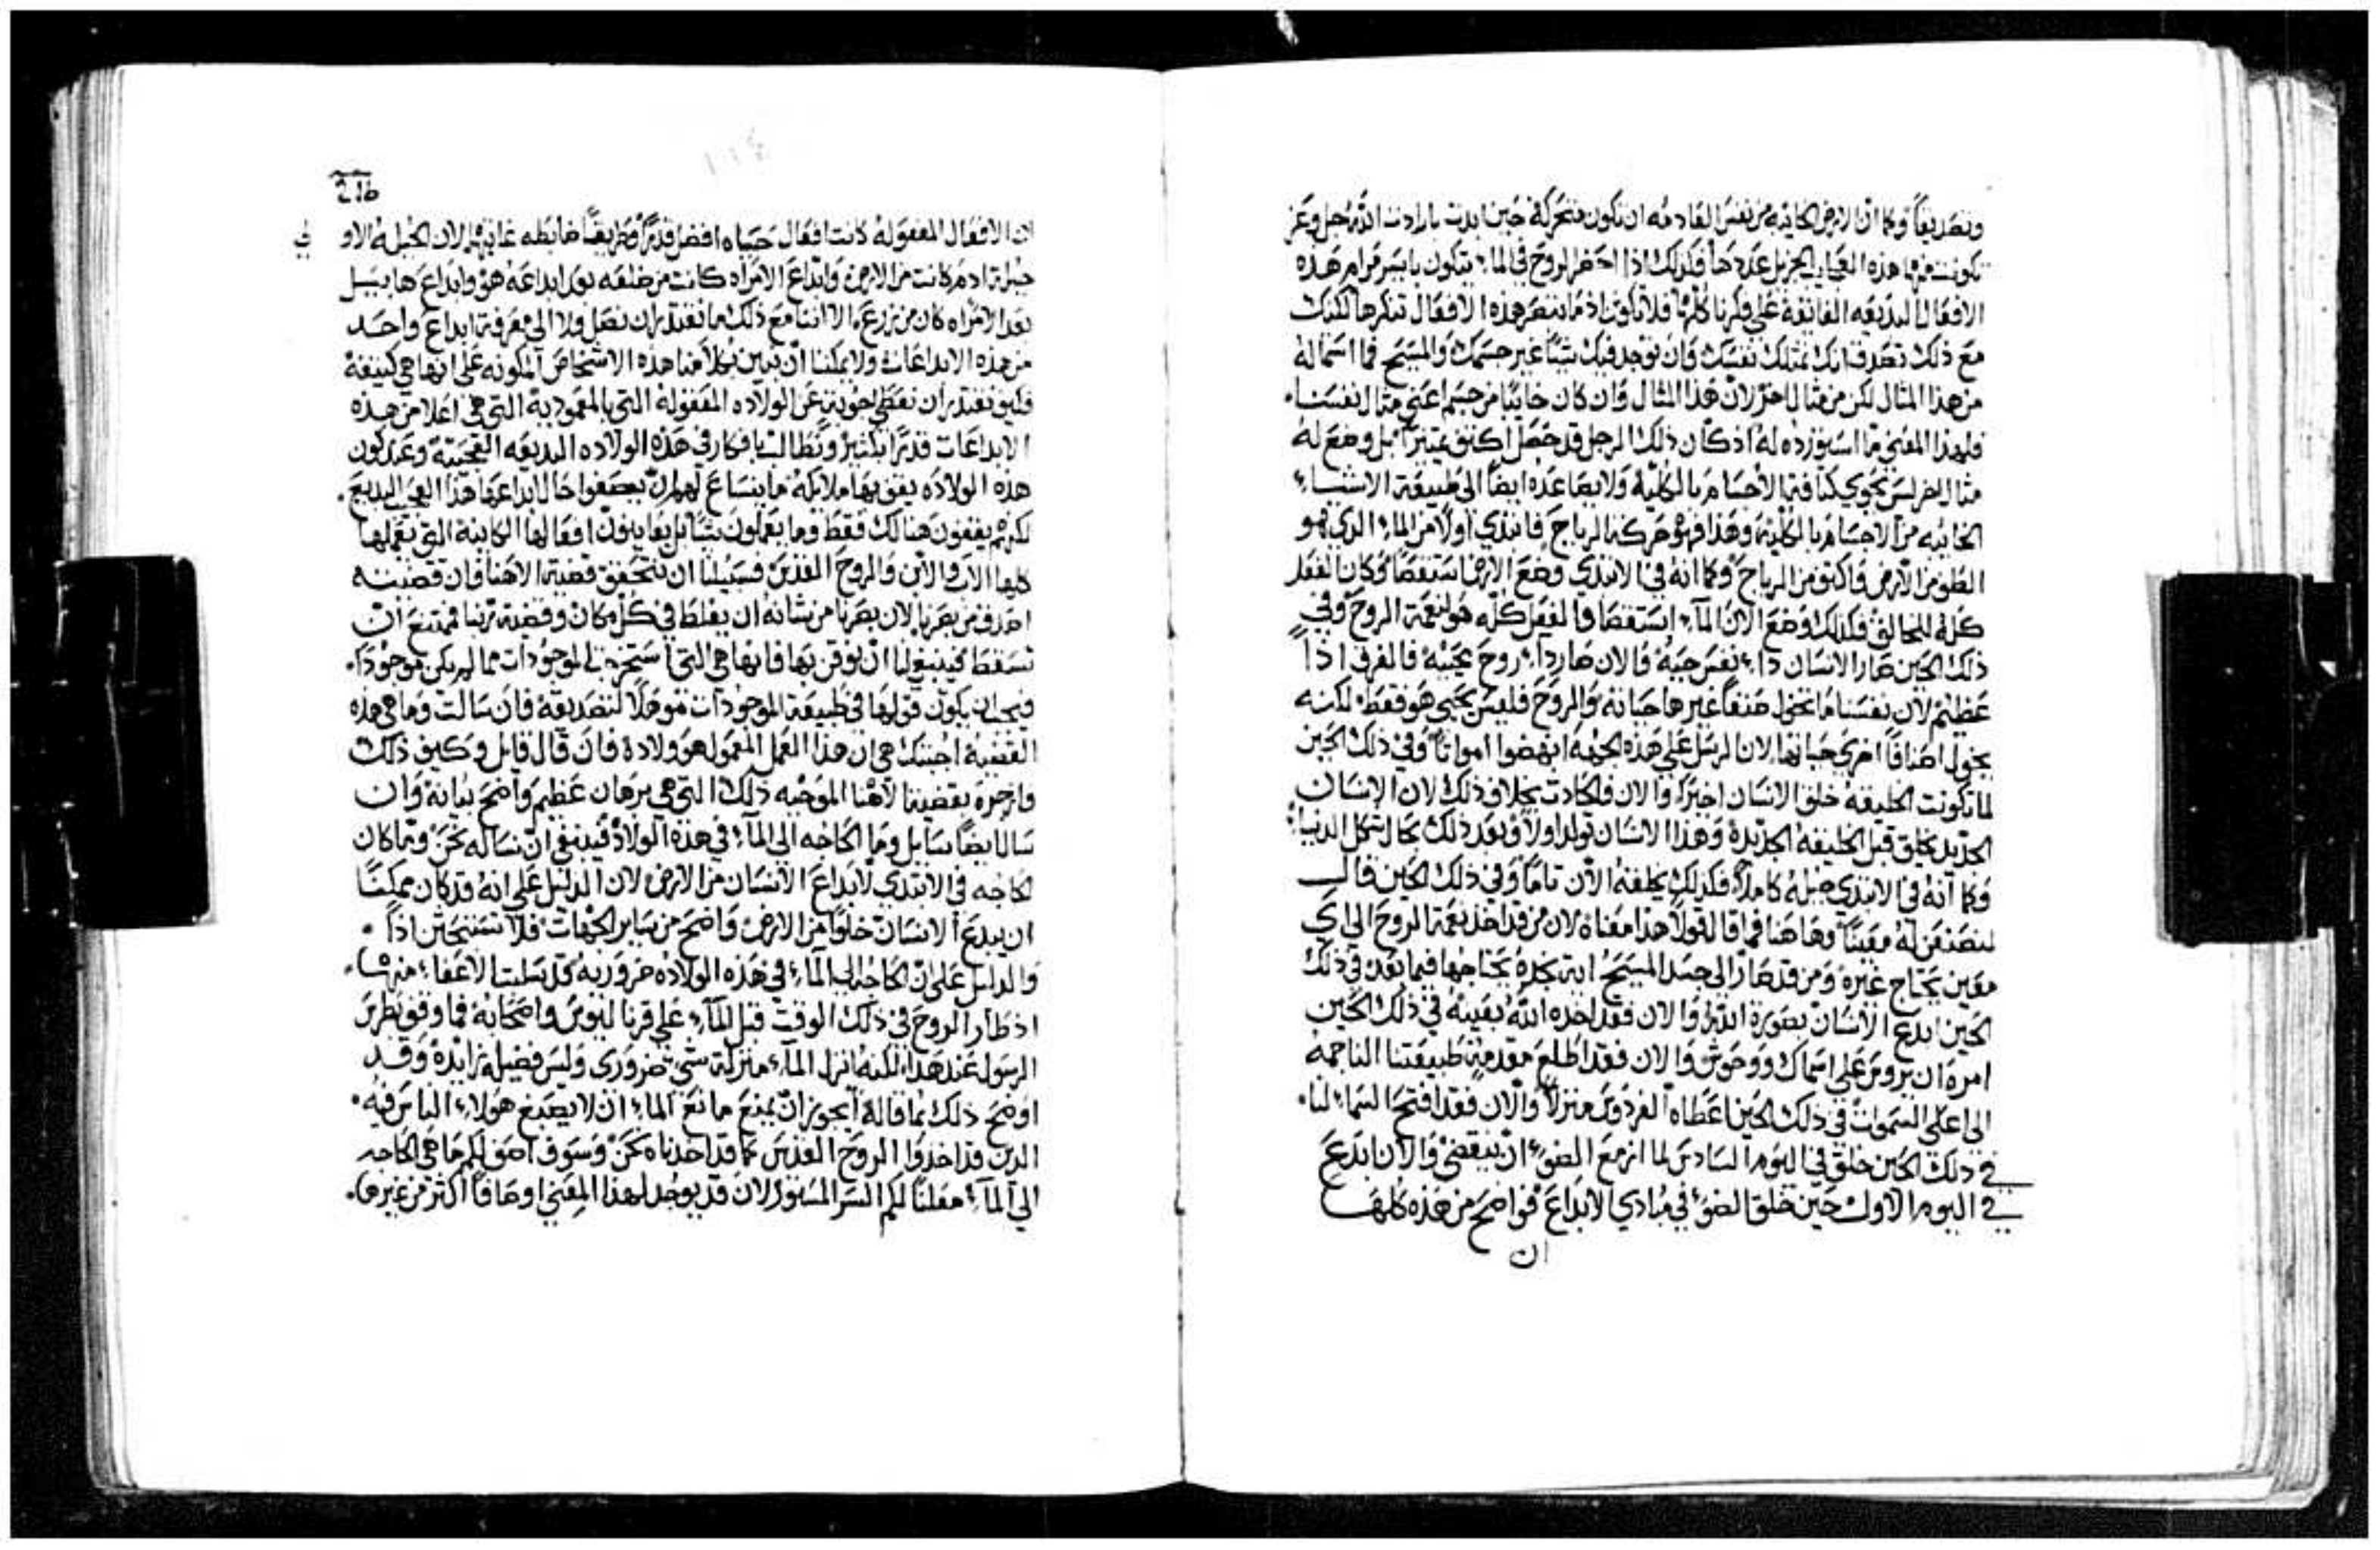 وتصديقاً وكما ان الارض الخايبه من نفس القادمه ان تكون متحركة حين ابدت بارادت الله جل وعز
تكونت منها هذه العجايب الجزيل عددها فكذلك اذا احضر الروح في الماء يتكون بايسر مرام هذه
الافعال البديعه الفايقة على فكرنا كلها فلا تكون اذ ما تبصر هذه الافعال تنكرها لكنك
مع ذلك تصدق انك تمتلك نفسك وان يوجد فيك شيئاً غير جسمك والمسيح فما استماله
من هذا المثال لكن من مثال اخر لان هذا المثال وان كان خايباً من جسم اعني مثال نفسنا
فلهذا المعنى ما استورده له اذ كان ذلك الرجل قد حصل اكثف تميزاً بل وضع له
مثال اخر ليس يحوي كثافة الاجسام بالكلية ولا يصاعده ايضاً الى طبيعة الاشياء
الخايبه من الاجسام بالكلية وهذا فهو حركة الرياح فابتدي اولاً من الماء الذي هو
الطف من الارض واكثف من الرياح وكما انه في الابتدي وضع الارض استقصا وكان الفعل
كله للخالق فكذلك وضع الان الماء استقصا والفعل كله هو لنعمة الروح وفي
ذلك الحين صار الانسان ذا نفس حيه والان صار ذا روح محييه فالفرق اذاً
عظيم لان نفسنا ما تخول صنفاً غيرها حياته والروح فليس يحيي هو فقط لكنه
يخول اصنافاً اخرى حياتها لان الرسل على هذه الجهه انهضوا امواتاً وفي ذلك الحين
لما تكونت الخليقه خلق الانسان اخيراً والان فكادت بخلاف ذلك لان الانسان
الجديد يخلق قبل الخليقه الجديدة وهذا الانسان تولد اولاً وبعد ذلك يحال شكل الدنيا
وكما انه في الابتدي جبله كاملاً فكذلك يخلقه الان تاماً وفي ذلك الحين قال
لنصنعن له معيناً وهاهنا فما قال قولاً هذا معناه لان من قد اخذ نعمة الروح الى اي
معين يحتاج غيره ومن قد صار الى جسد المسيح اية نجدة يحتاجها فيما بعد في ذلك
الحين ابدع الانسان بصورة الله والان فقد اخذه الله بعينه في ذلك الحين
امره ان يروس على اسماك ووحوش والان فقد اطلع مقدمة طبيعتنا الناجمه
الى اعلى السموات في ذلك الحين اعطاه الفردوس منزلاً والان فقد افتح السماء لنا
في ذلك الحين خلق في اليوم السادس لما ازمع الضوء ان ينقضي والان ابدع
في اليوم الاول حين خلق الضوء في مبادي الابداع فواضح من هذه كلها
ان
216
ان الافعال المفعوله كانت افعال حياه افضل قدراً وطريقاً ضابطه غايتها لان الجبله الاو
في
جبلة ادم كانت من الارض وابداع الامراه كانت من ضلعه بعد ابداعه هو وابداع هابيل
بعد الامراه كان من زرع الا اننا مع ذلك ما نقتدر ان نصل ولا الى معرفة ابداع واحد
من هذه الابداعات ولا يمكننا ان نبين بكلامنا هذه الاشخاص المكونه على انها هي كثيفة
فكيف نقتدر ان نعطي اجوبة عن الولاده المعقوله التي بالمعمودية التي هي اعلا من هذه
الابداعات قدراً بكثير ونطالب بافكار في هذه الولاده البديعه العجيبة وعند كون
هذه الولاده يقف بها ملايكه ما ينساغ لهم ان يصفوا حال ابداعها هذا العجيب البديع
لكنهم يقفون هنالك فقط وما يعملون شيئاً بل يعاينون افعالها الكاينة التي يعملها
كلها الاب والابن والروح القدس فسبيلنا ان نتحقق قضية الاهنا فان قضيته
اصدق من بصرنا لان بصرنا من شانه ان يغلط في كل مكان وقضية ربنا فممتنع ان
تسقط فينبغي لنا ان نوقن بها فانها هي التي استخرجت الموجودات مما لم يكن موجوداً
فيجب ان يكون قولها في طبيعة الموجودات موهلاً لتصديقه فان سالت وما هي هذه
القضية اجبتك هي ان هذا العمل المعمول هو ولادة فان قال قايل وكيف ذلك
فازجره بقضية الاهنا الموجبه ذلك التي هي برهان عظيم واضح بيانه وان
سال ايضاً سايل وما الحاجه الى الماء في هذه الولاد فينبغي ان نساله نحن وما كان
الحاجه في الابتدي لابداع الانسان من الارض لان الدليل على انه قد كان ممكناً
ان يبدع الانسان خلواً من الارض واضح من ساير الجهات فلا تستبحثن اذاً
والدليل على ان الحاجة الى الماء في هذه الولاده ضرورية قد سلبت الاعفاء منها
اذ طار الروح في ذلك الوقت قبل الماء على قرنيليوس واصحابه فما وقف بطرس
الرسول عند هذا لكنه انزل الماء منزلة شي ضروري وليس فضيلة زايدة وقد
اوضح ذلك بما قاله ايجوز ان يمنع مانع الماء ان لا يصبغ هولاء الناس فيه
الذين قد اخذوا الروح القدس كما قد اخذناه نحن وسوف اصف لكم ما هي الحاجه
الى الماء معلناً لكم السر المستور لان قد يوجد لهذا المعني اوصافاً اكثر من غيرها